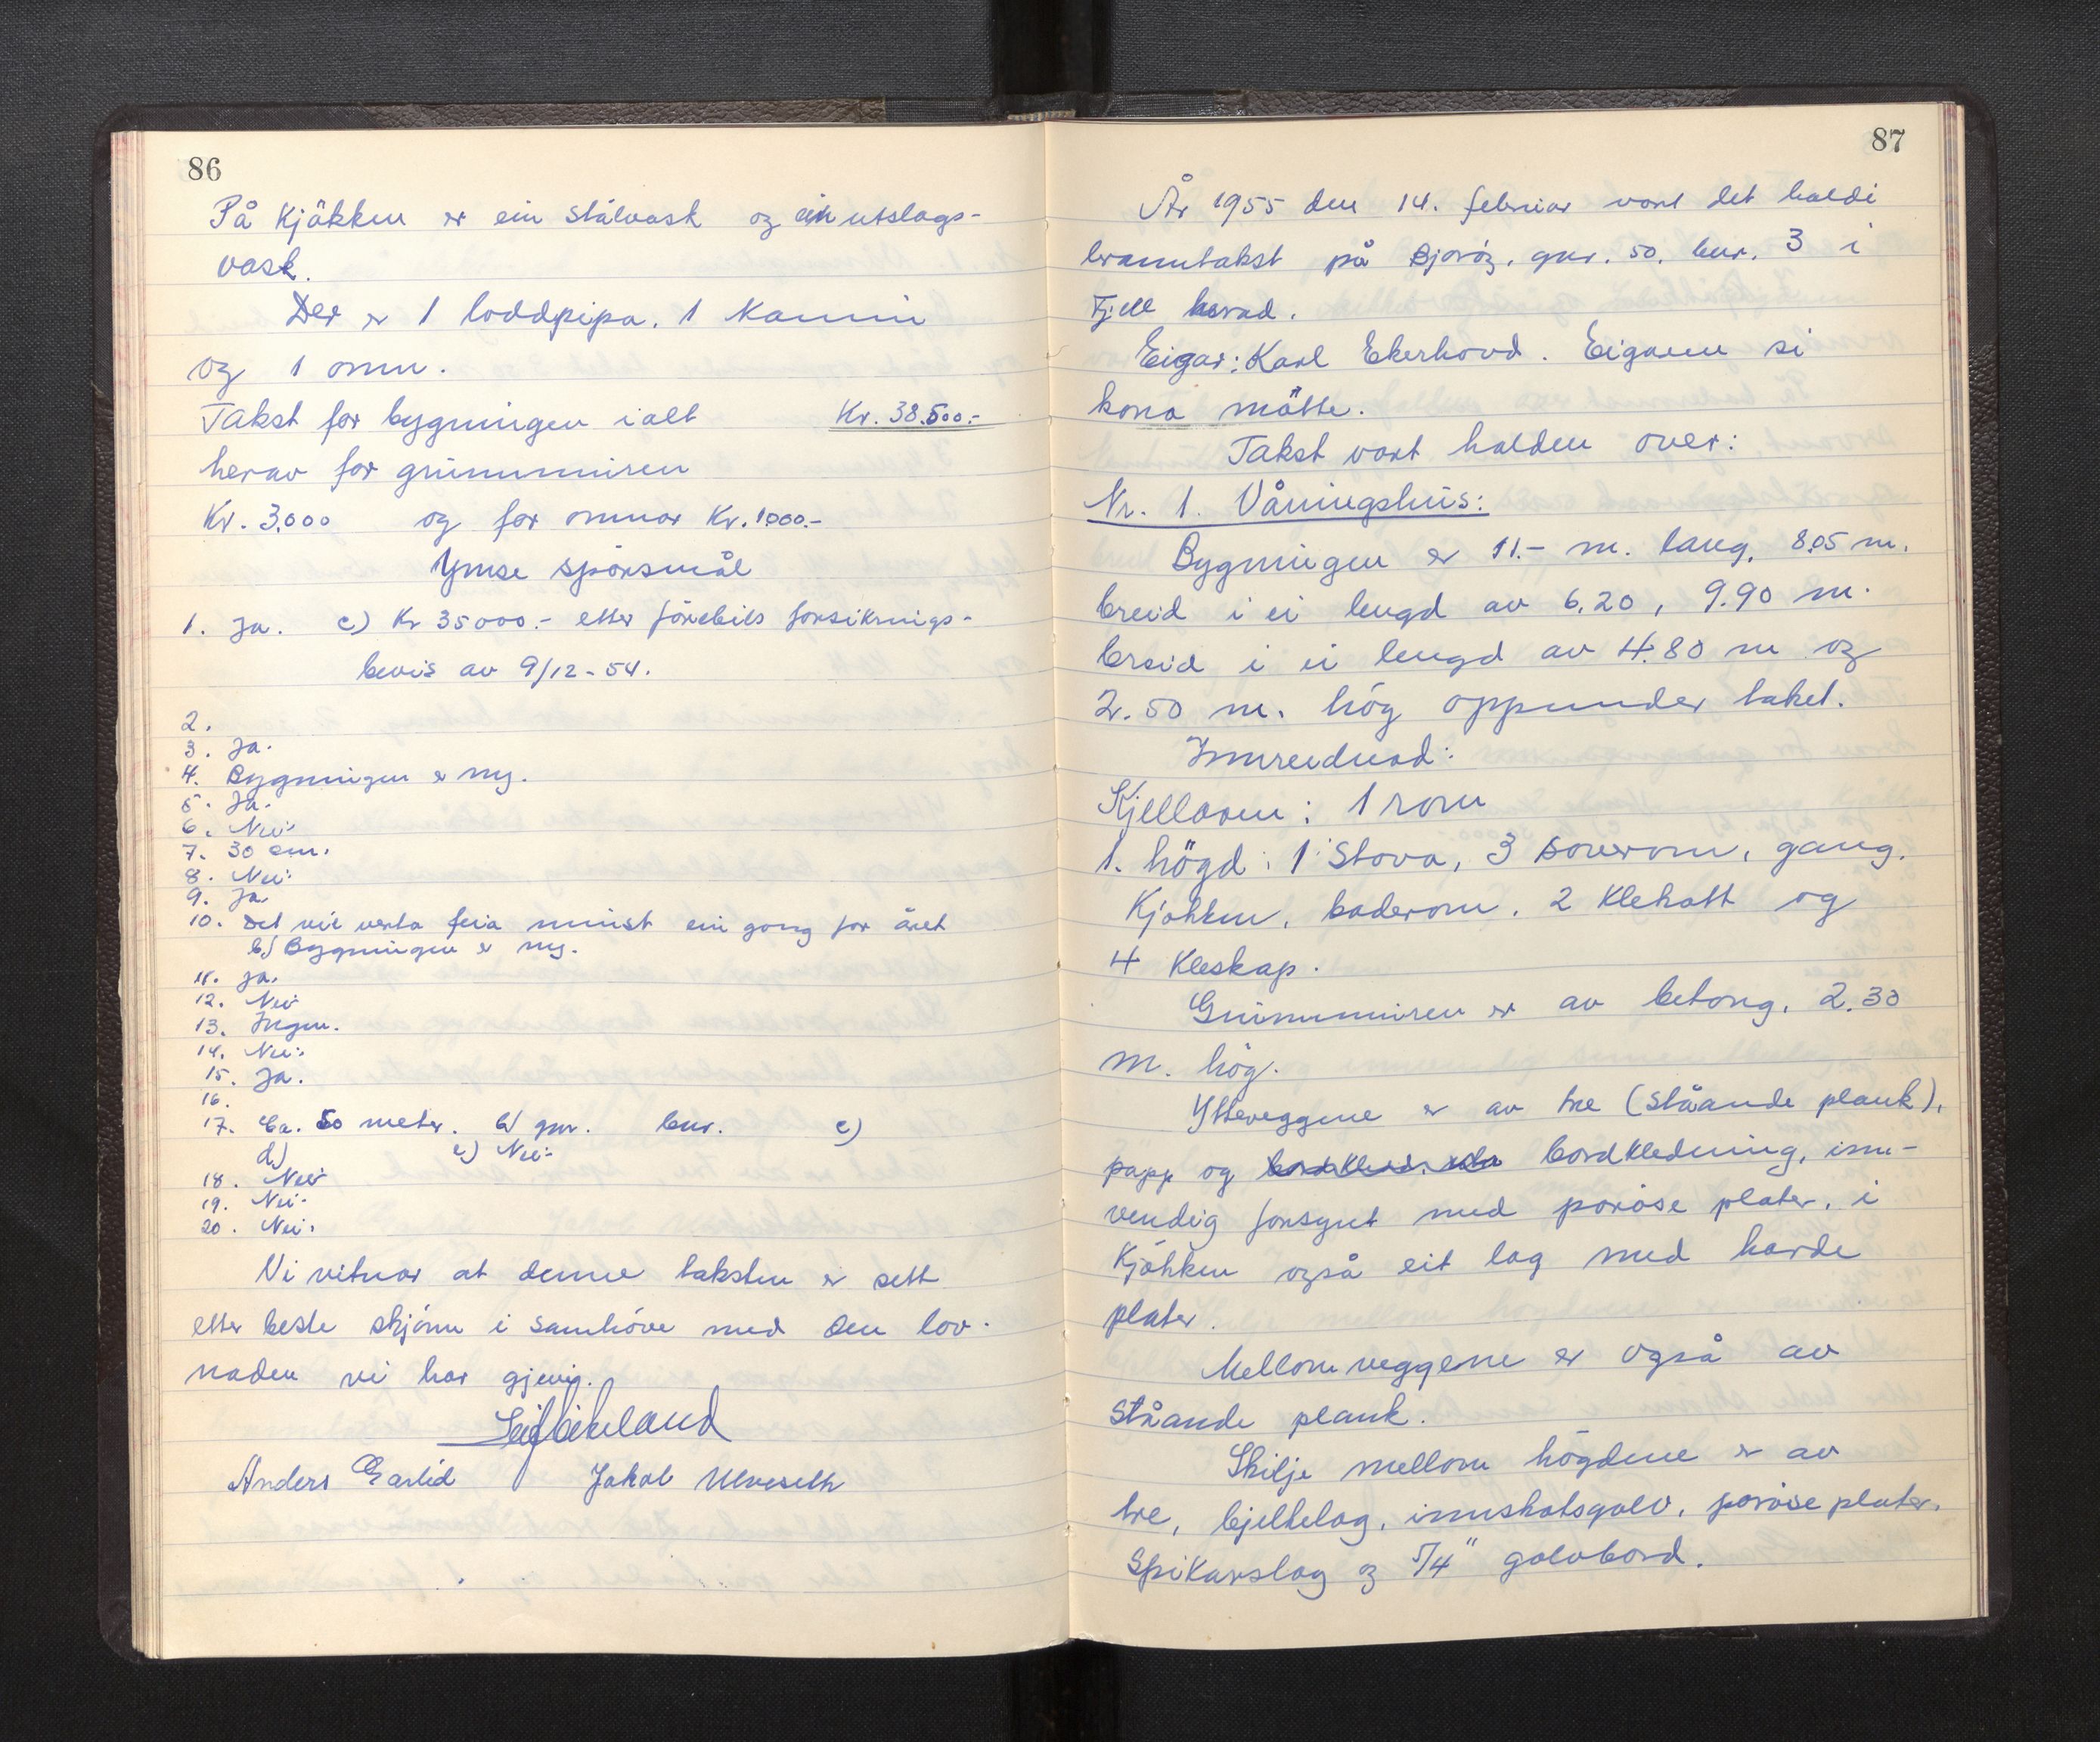 86
På Kjökken er ein stålvask og ein utslags-
vask.
Der er 1 loddpipa, 1 Kamin
og 1 omn.
Takst for bygningen ialt Kr. 38.500.-
herav for grunnmuren
Kr. 3.000 og for omnar Kr. 1000.-
Ymse spörsmål
1. Ja. c) Kr 35000.- etter förebils forsikrings-
bevis av 9/12-54.
2.
3. Ja.
4. Bygningen er ny.
5. Ja.
6. Nei.
7. 30 cm.
8. Nei.
9. Ja
10. Det vil verta feia minst ein gong for året
b) Bygningen er ny.
11. Ja.
12. Nei
13. Ingen.
14. Nei.
15. Ja.
16.
17. Ca. 50 meter. b) gnr. bnr. c)
d) e) Nei.
18. Nei
19. Nei.
20. Nei.
Vi vitnar at denne taksten er sett
etter beste skjönn i samhöve med den lov-
naden vi har gjevi.
Leif Eikeland
Anders Earlid Jakob Ulveseth
87
År 1955 den 14. februar vart det haldi
branntakst på Bjoröy, gnr. 50. bnr. 3 i
Fjell herad.
Eigar: Karl Ekerhovd. Eigaren si
kona mötte.
Takst vart halden over:
Nr. 1. Våningshus:
Bygningen er 11.- m. lang, 8,05 m.
breid i ei lengd av 6,20, 9.90 m.
breid i ei lengd av 4.80 m og
2.50 m. hög oppunder taket.
Innreidnad:
Kjellaren: 1 rom
1. högd: 1 Stova, 3 soverom, gang.
Kjökken, baderom, 2 Klekott og
4 Kleskap.
Grunnmuren er av betong, 2.30
m. hög.
Ytteveggene er av tre (ståande plank),
papp og bordkledning, inn-
vendig forsynt med poröse plater, i
Kjökken også eit lag med harde
plater.
Mellomveggene er også av
ståande plank.
Skilje mellom högdene er av
tre, bjelkelag, innskotsgolv, poröse plater,
Spikarslag og 5/4" golvbord.